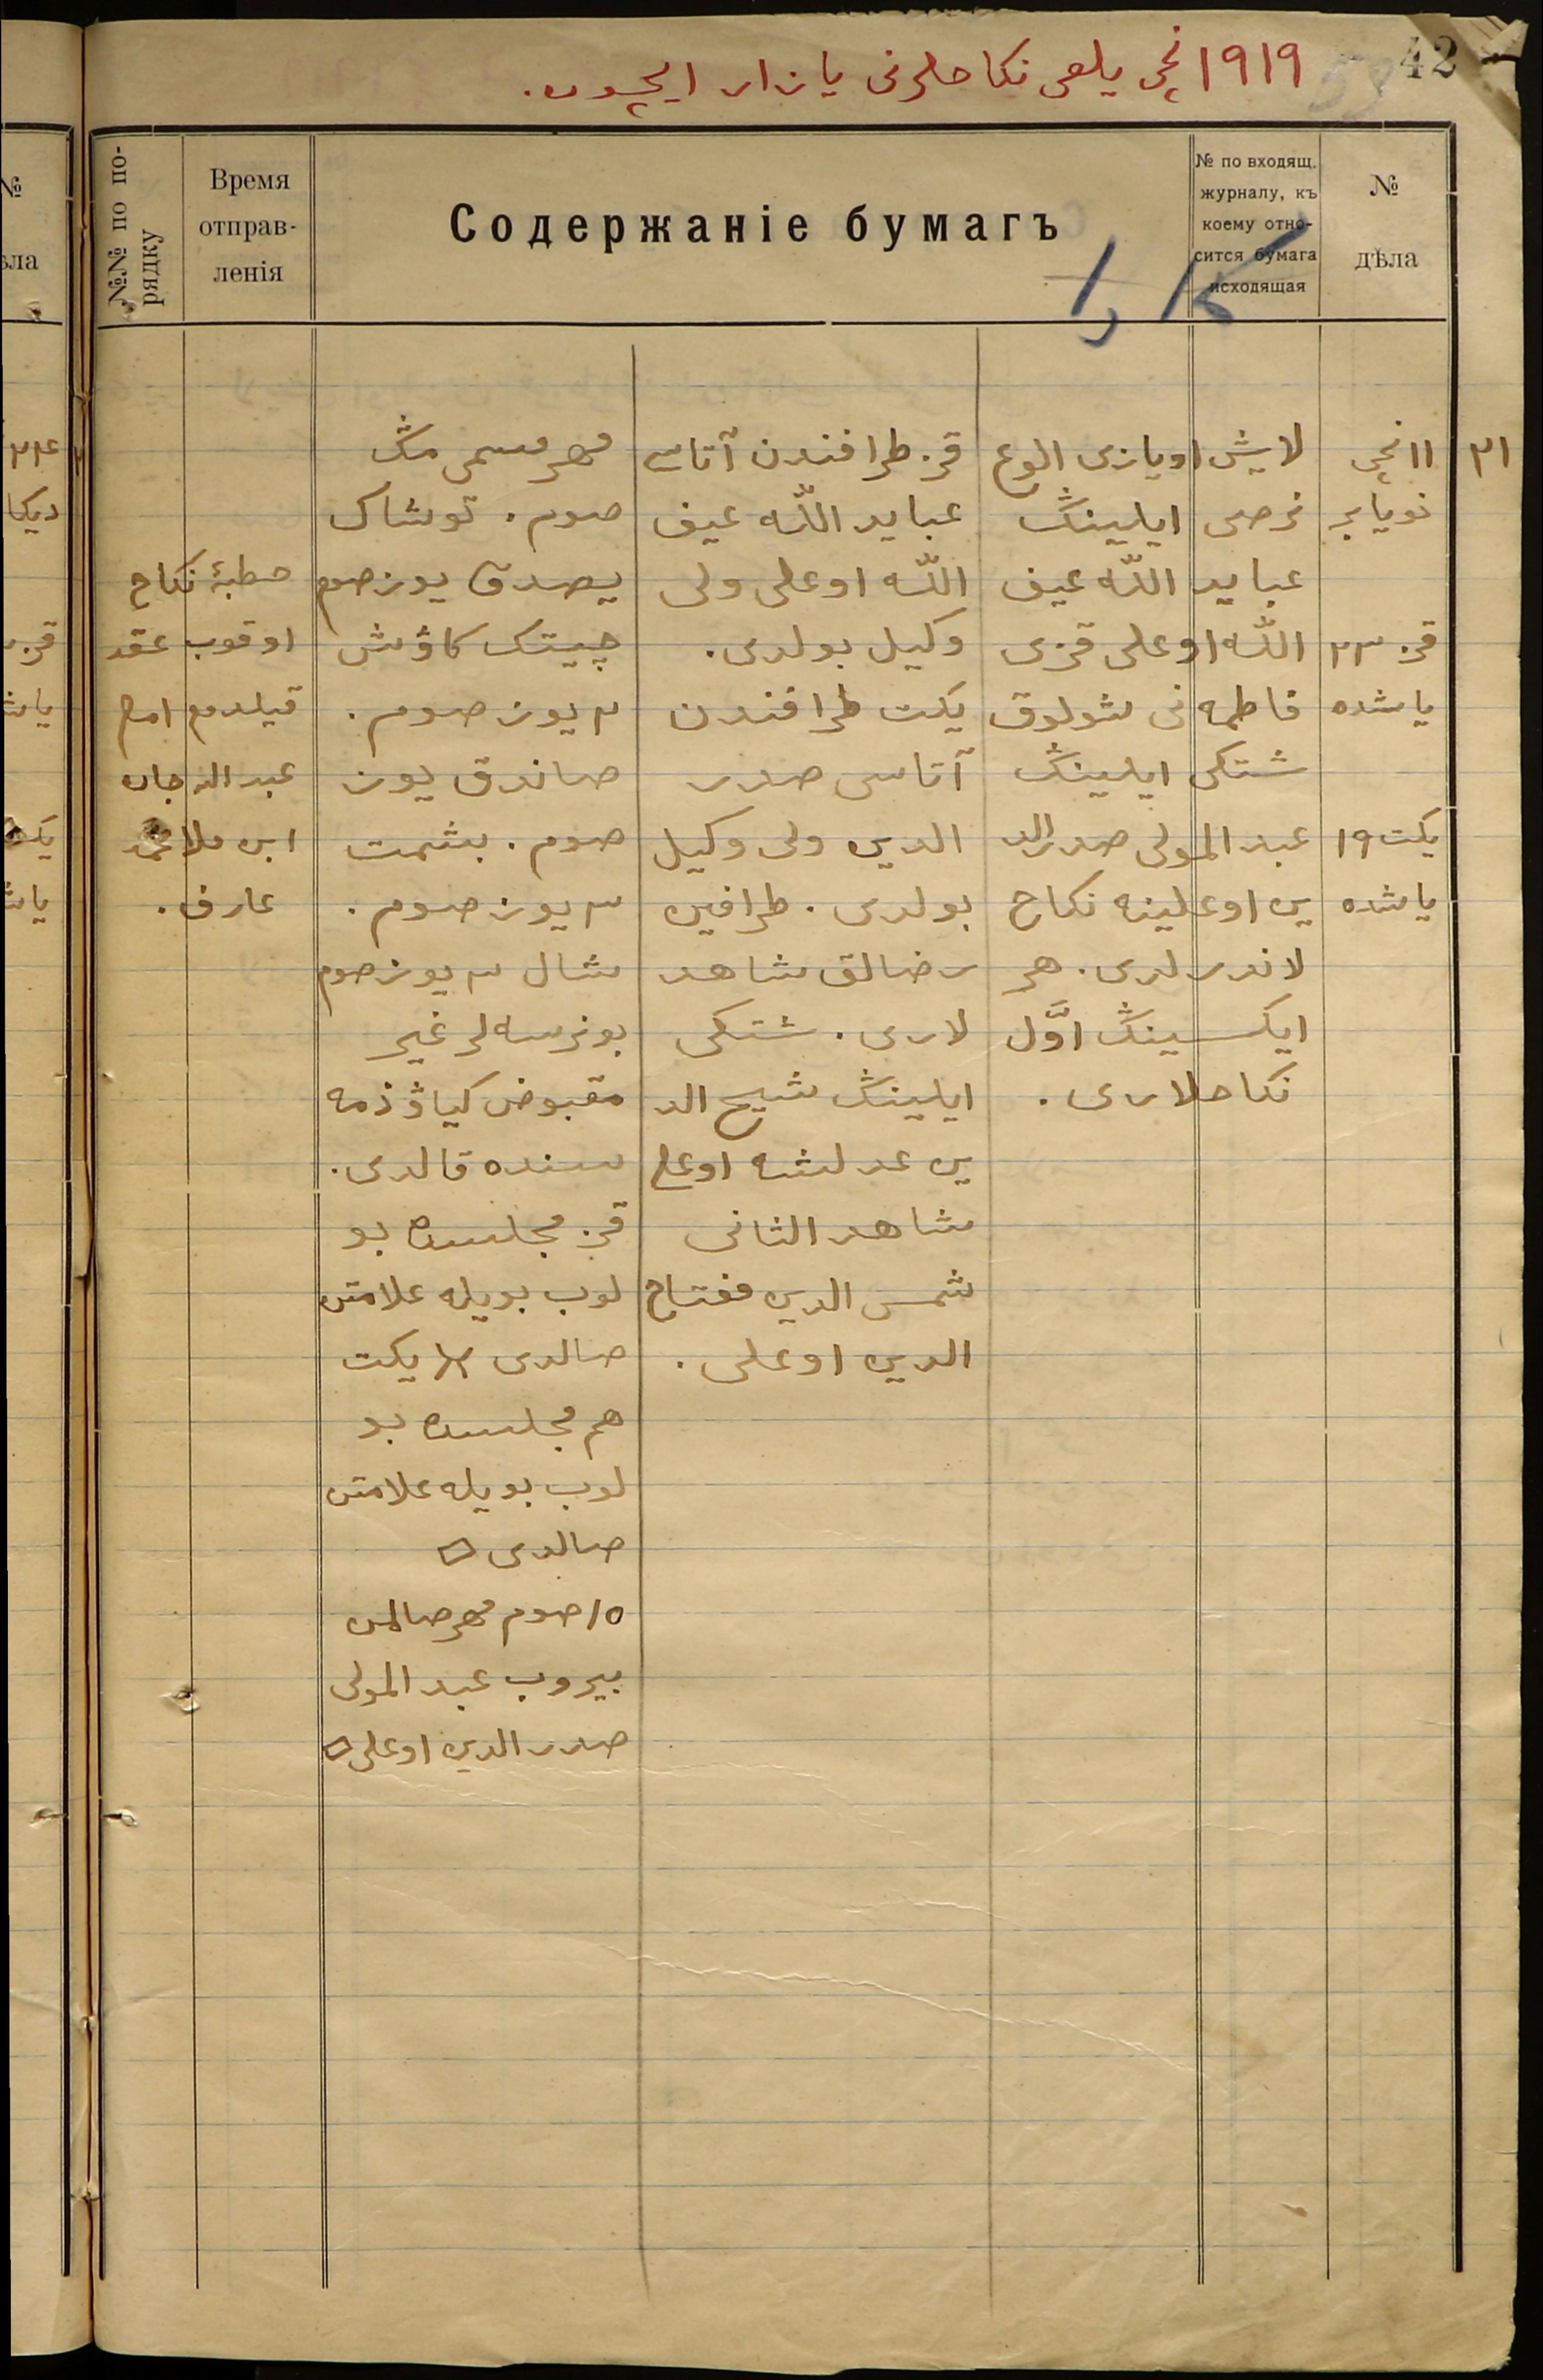 42
١٩١٩ نچی یلعی نکاحلرنی یازار ایچون.
№№ по по-
рядку
Время
отправ-
ленія
Содержаніе бумагъ
№ по входящ.
журналу, къ
коему отно-
сится бумага
исходящая
№
дѣла
٢١
١١ نچی
نویابر
قز ٢٣
یاشده
یکت ١٩
یاشده
لایش اویازی الوغ
نرصی ایلینڭ
عباید اللّه عیف
اللّه اوعلی قزی
فاطمه نی شولوق
شتکی ایلینڭ
عبد المولی صدرالد
ین اوعلینه نکاح
لاندرلدی. هر
ایکسینڭ اوَّل
نکاحلاری.
قز طرافندن آتاسی
عباید اللّه عیف
اللّه اوعلی ولی
وکیل بولدی.
یکت طرافندن
آتاسی صدر
الدین ولی وکیل
بولدی. طرافین
رضالق شاهد
لاری. شتکی
ایلینڭ شیح الد
ین عدلشه اوعلی
شاهد الثانی
شمس الدین مفتاح
الدین اوعلی.
مهر مسمی مڭ
صوم. توشاك
یصدق یوز صوم
چیتک کاوش
٣ یوز صوم.
صاندق یوز
صوم. بشمت
٣ یوز صوم.
شال ٣ یوز صوم
بونرسه لر غیر
مقبوض کیاو ذمه
سنده قالدی.
قز مجلسده بو
لوب بویله علامتن
صالدی یکت
هم مجلسده بو
لوب بویله علامتن
صالدی
١٥ صوم مهر صالمن
بیروب عبد المولی
صدر الدین اوعلی
خطبۀ نکاح
اوقوب عقد
قیلدم امام
عبد الر جان
ابن ملا محمد
عارف.